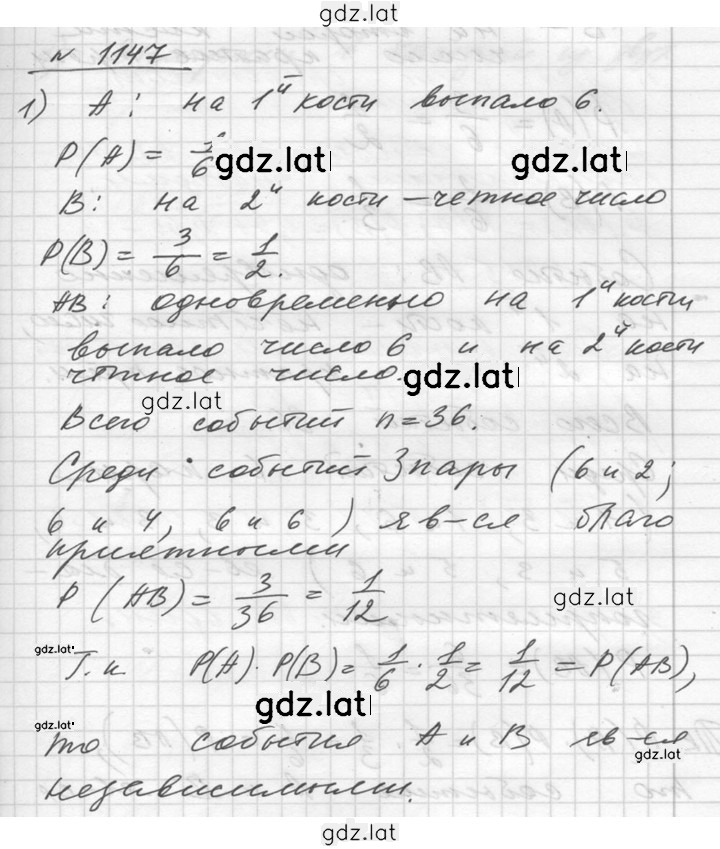 gdz.lat
№ 1147
1) A: на 1й кости выпало 6.
P(A) = 1/6 gdz.lat gdz.lat
B: на 2й кости - четное число
P(B) = 3/6 = 1/2.
AB: одновременно на 1й кости
выпало число 6 и на 2й кости
чтное число. gdz.lat
gdz.lat
Всего событий n=36.
Среди событий 3 пары (6 и 2;
6 и 4, 6 и 6) яв-ся благо
приятными
P(AB) = 3/36 = 1/12 gdz.lat
gdz.lat
Т.к P(A)·P(B) = 1/6 · 1/2 = 1/12 = P(AB),
gdz.lat
gdz.lat
то события A и B яв-ся
gdz.lat
независимыми.
gdz.lat